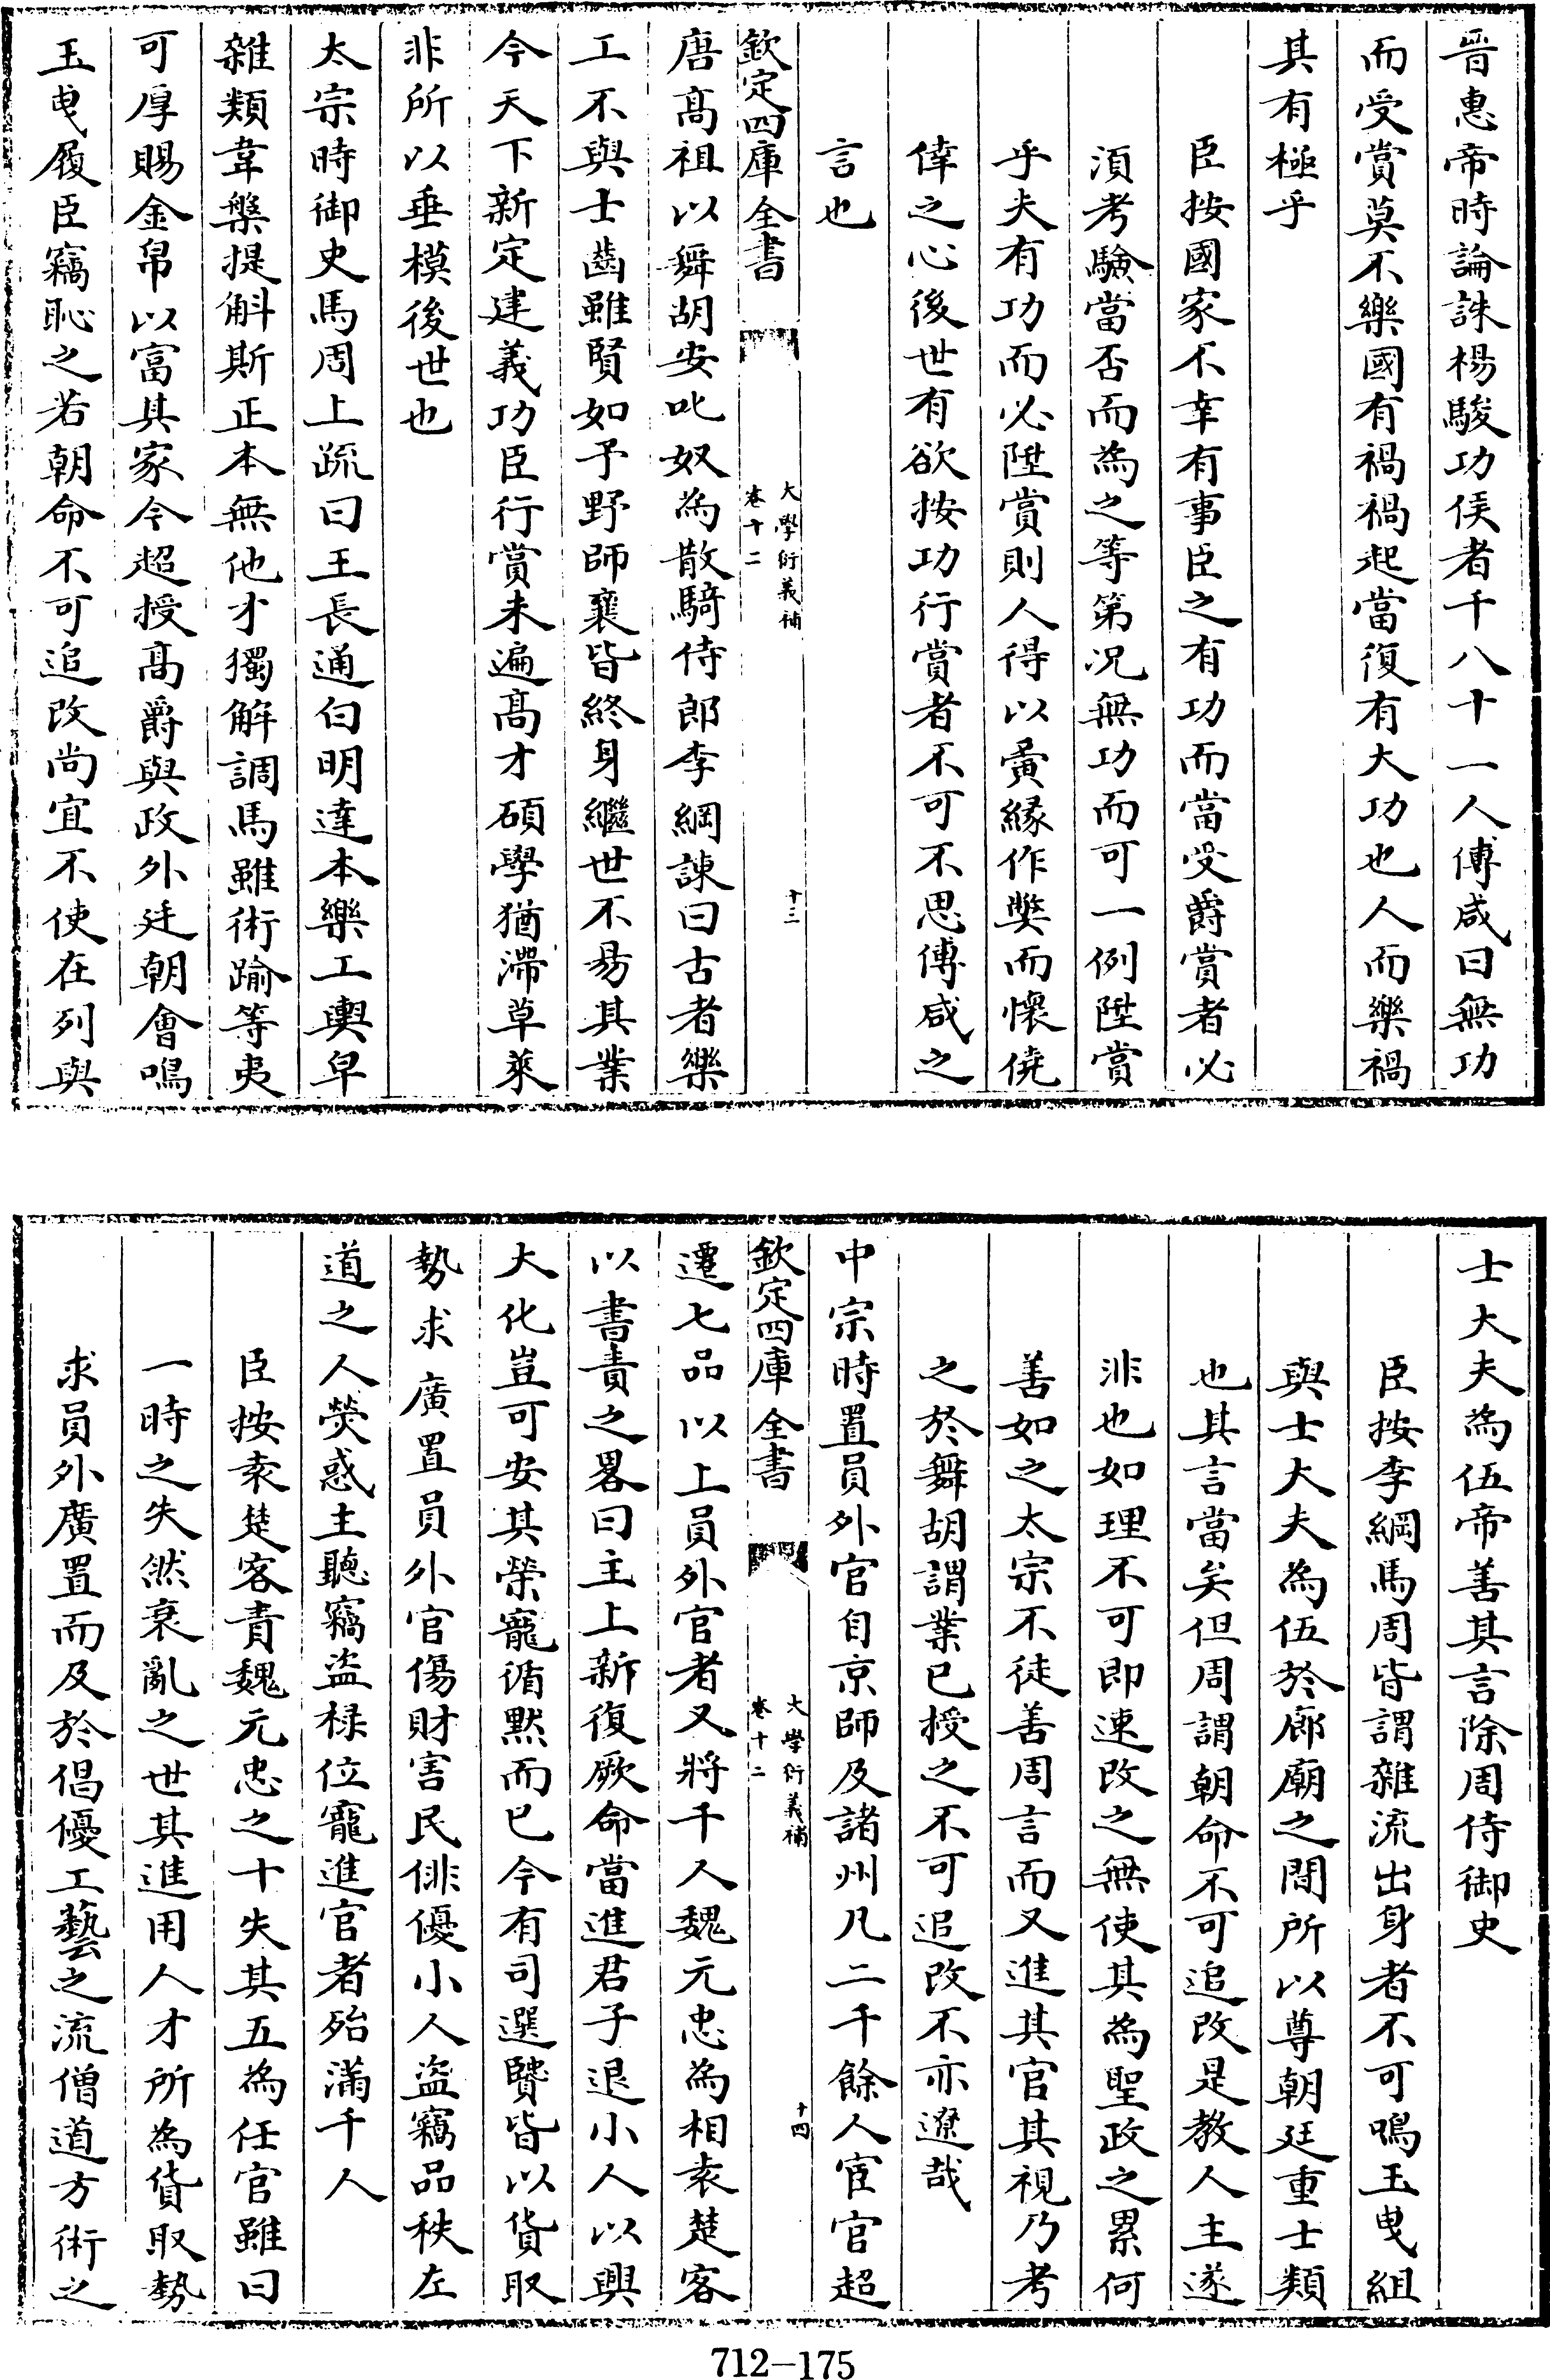 晉惠帝時論誅楊駿功侯者千八十一人傅咸曰無功
而受賞莫不樂國有禍禍起當復有大功也人而樂禍
其有極乎
臣按國家不幸有事臣之有功而當受爵賞者必
湏考驗當否而為之等第况無功而可一例陞賞
乎夫有功而必陞賞則人得以夤緣作獘而懷僥
倖之心後世有欲按功行賞者不可不思傅咸之
言也
欽定四庫全書
大學衍義補
卷十二
十三
唐髙祖以舞胡安叱奴為散騎侍郎李綱諫曰古者樂
工不與士齒雖賢如子野師襄皆終身繼世不易其業
今天下新定建義功臣行賞未遍髙才碩學猶滯草萊
非所以垂模後世也
太宗時御史馬周上疏曰王長通白明達本樂工輿皁
雜類韋槃提斛斯正本無他才獨解調馬雖術踰等夷
可厚賜金帛以富其家今超授髙爵與政外廷朝會鳴
玉曵履臣竊恥之若朝命不可追改尚宜不使在列與
士大夫為伍帝善其言除周侍御史
臣按李綱馬周皆謂雜流出身者不可鳴玉曵組
與士大夫為伍於廊廟之間所以尊朝廷重士類
也其言當矣但周謂朝命不可追改是教人主遂
非也如理不可即速改之無使其為聖政之累何
善如之太宗不徒善周言而又進其官其視乃考
之於舞胡謂業已授之不可追改不亦遼哉
中宗時置員外官自京師及諸州凡二千餘人宦官超
欽定四庫全書
大學衍義補
卷十二
十四
遷七品以上員外官者又將千人魏元忠為相袁楚客
以書責之畧曰主上新復厥命當進君子退小人以興
大化豈可安其榮寵循黙而已今有司選賢皆以貨取
勢求廣置員外官傷財害民俳優小人盜竊品秩左
道之人熒惑主聽竊盜祿位寵進官者殆滿千人
臣按袁楚客責魏元忠之十失其五為任官雖曰
一時之失然衰亂之世其進用人才所為貨取勢
求員外廣置而及於倡優工藝之流僧道方術之
712-175